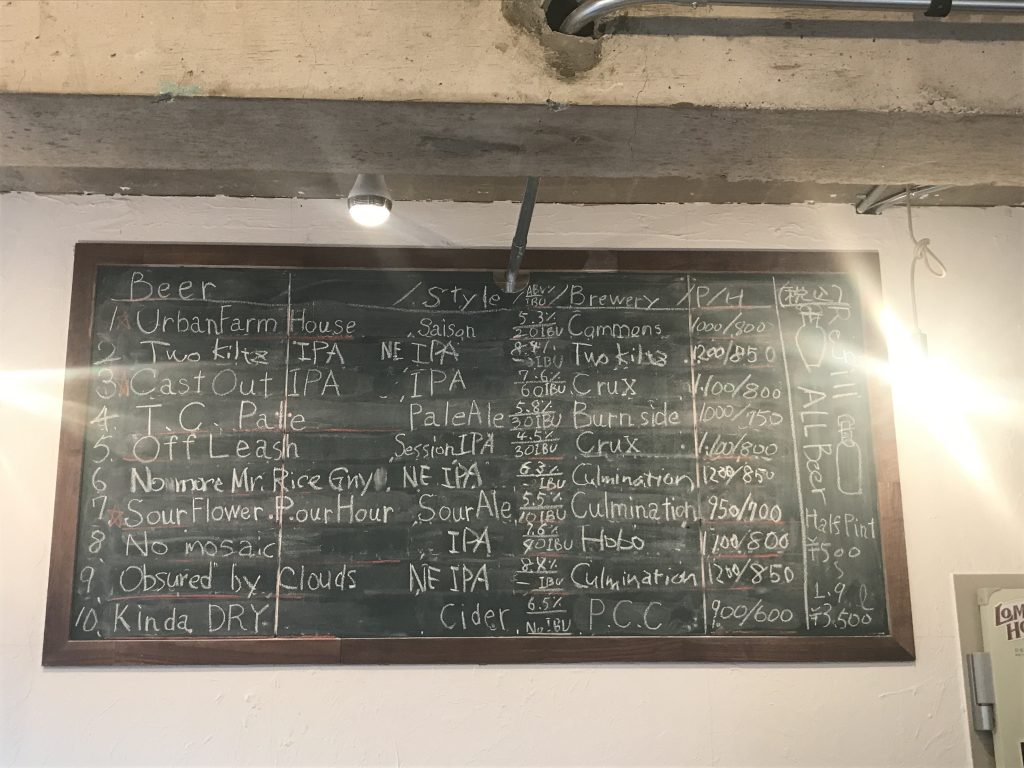 Beer / Style / ABV% IBU / Brewery / P/H
1. UrbanFarm House Saison 5.3% 20IBU Commons 1000/800
2 Two kilts IPA NE IPA IBU Two kilts 1200/850
3. Cast Out IPA IPA 7.6% 60IBU Crux 1100/800
4. T.C. Pale PaleAle 5.8% 30IBU Burnside 1000/750
5. Off Leash SessionIPA 4.5% 30IBU Crux 1100/800
6 No more Mr. Rice Guy NE IPA 6.3% IBU Culmination 1200/850
7. SourFlower PourHour SourAle 5.5% 10IBU Culmination 950/700
8. No mosaic IPA 80IBU Hobo 1100/800
9. Obsured by Clouds NE IPA 8.8% – IBU Culmination 1200/850
10. Kinda DRY Cider 6.5% No IBU P.C.C 900/600
Refill
ALL Beer
Half Pint
¥500
1.9 l
¥3,500